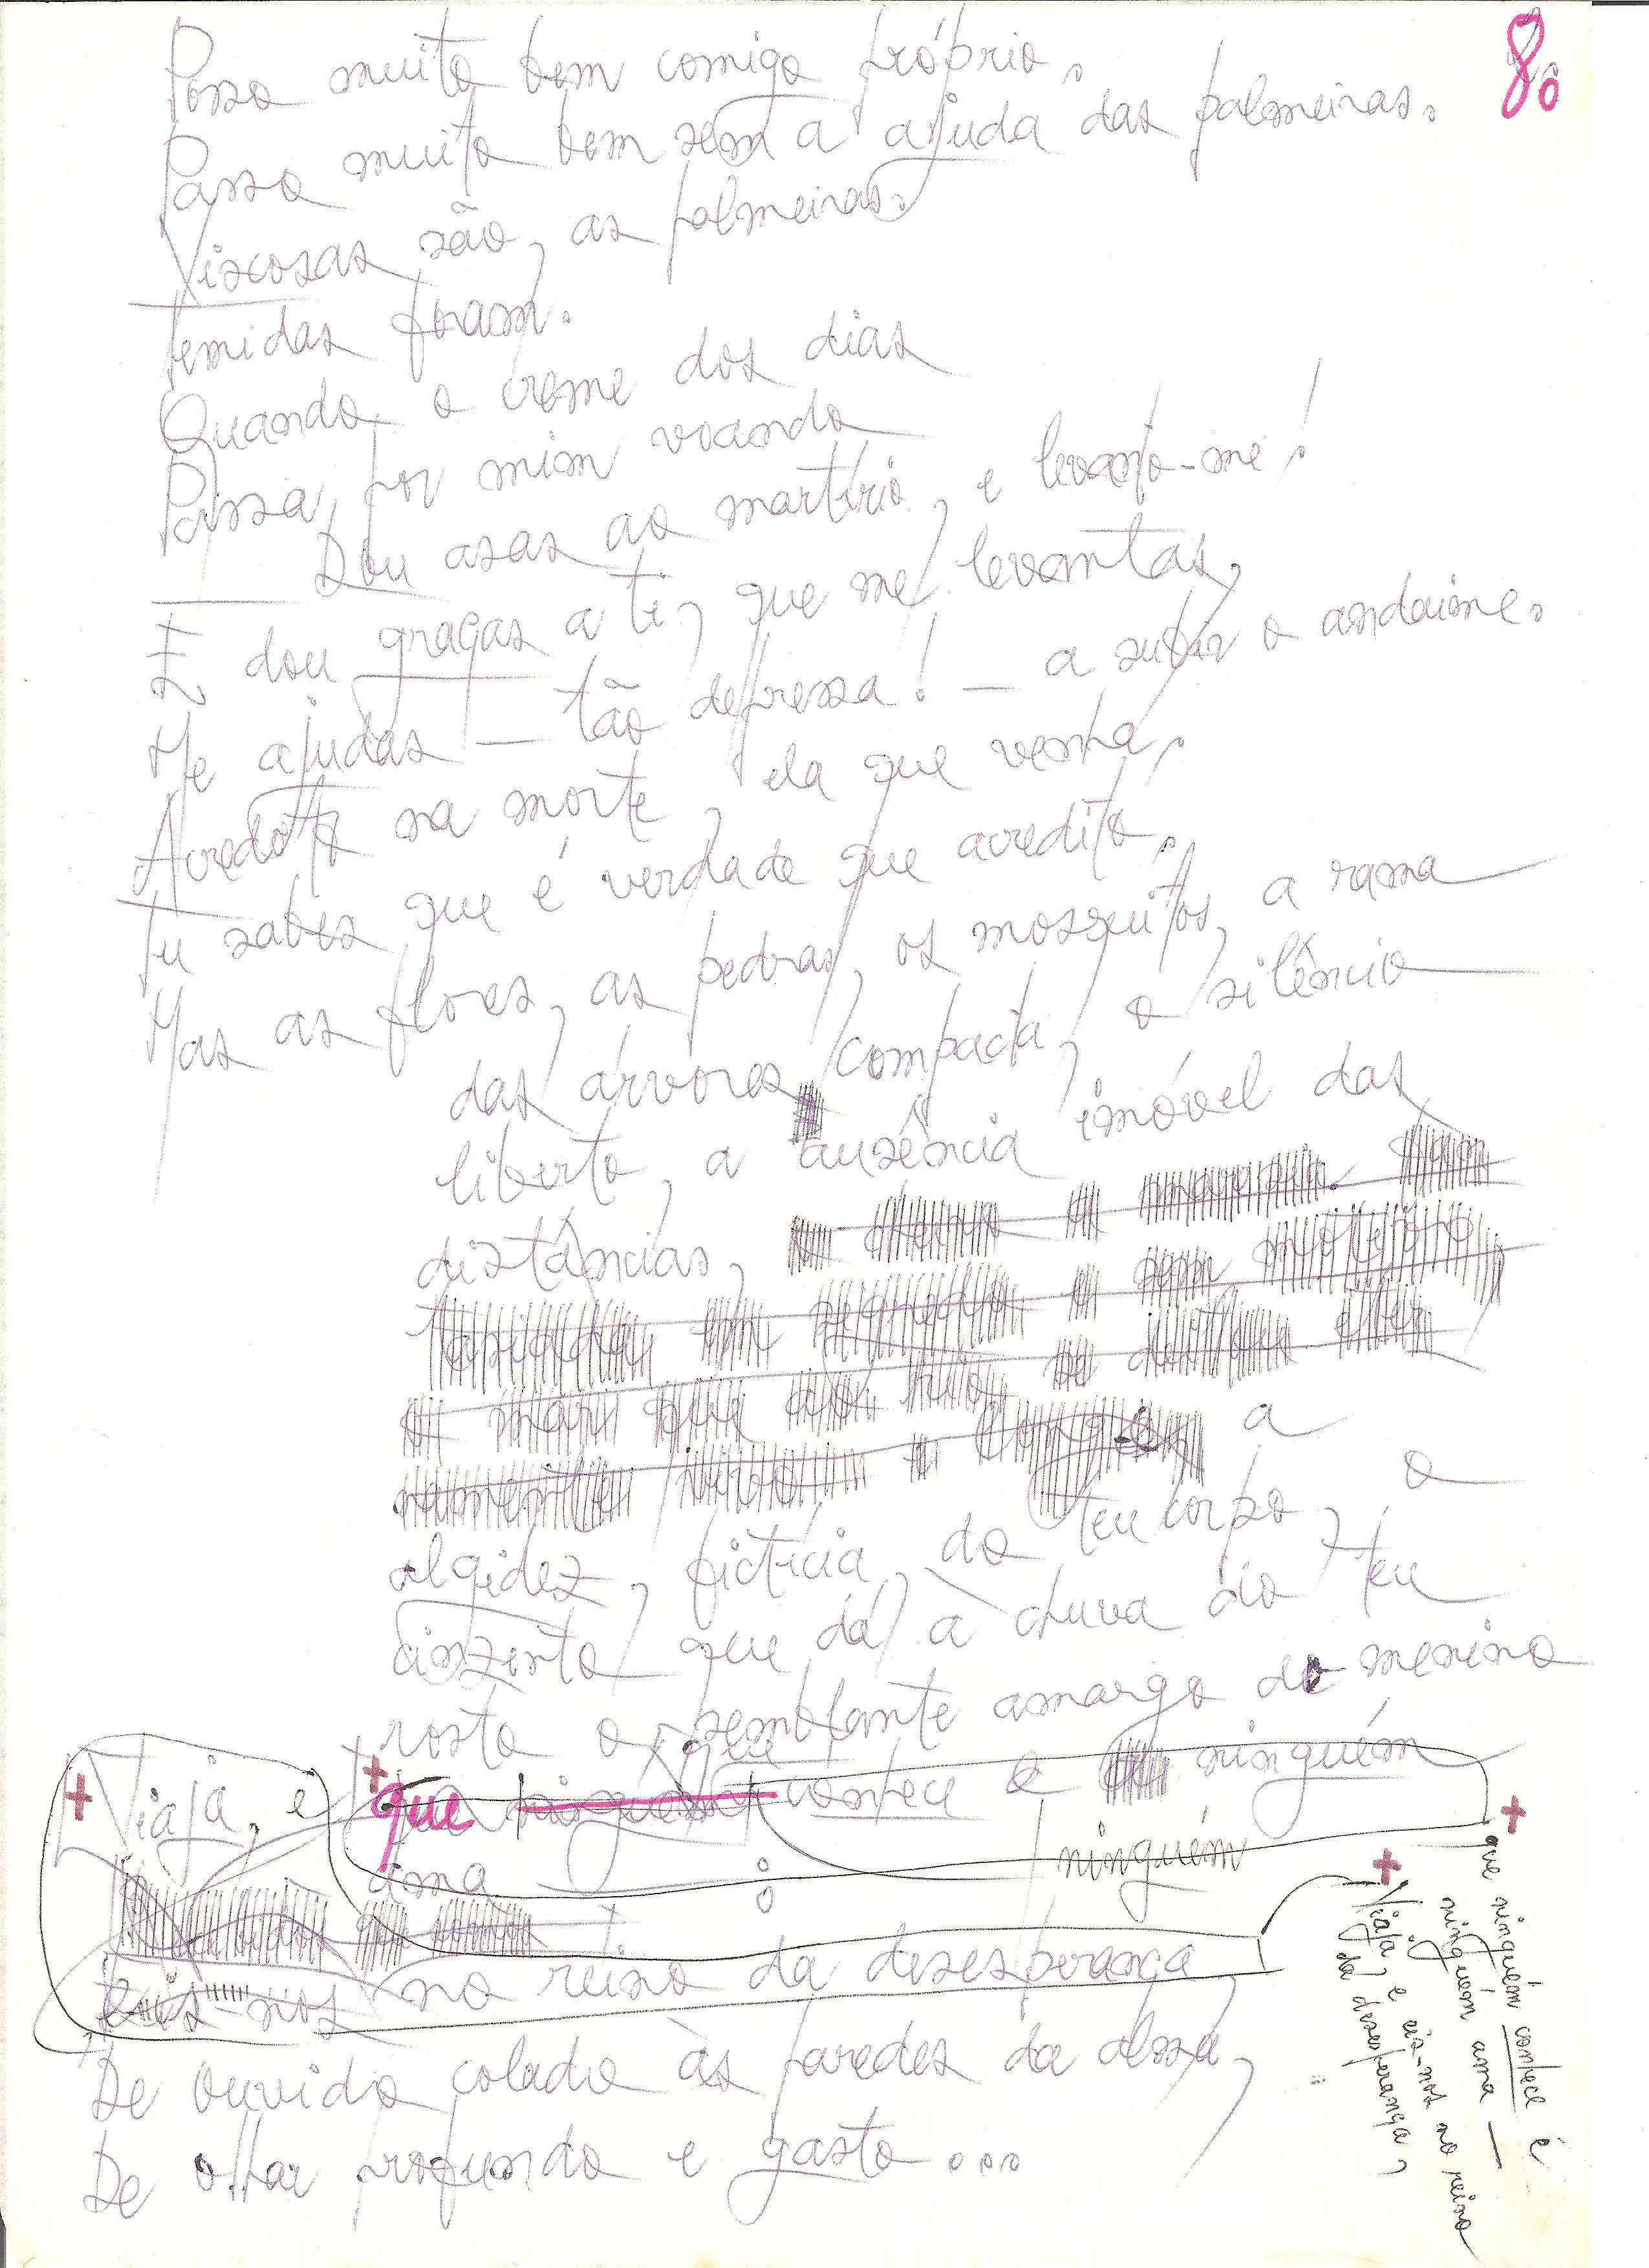 8.
Posso muito bem comigo próprio.
Passo muito bem sem a ajuda das palmeiras.
Viscosas são, as palmeiras.
Temidas foram.
Quando o creme dos dias
Passa por mim voando
Dou asas ao martírio, e levanto-me!
E dou graças a ti, que me levantas,
Me ajudas — tão depressa! — a subir o andaime.
Acredito na morte, ela que venha.
Tu sabes que é verdade que acredito.
Mas as flores, as pedras, os mosquitos, a rama
das árvores compacta, o silêncio
liberto, a ausência imóvel das
distâncias,
a
algidez, fictícia, do teu corpo, o
cinzento que dá a chuva ao teu
rosto o semblante amargo de menino
que
que ninguém conhece e ninguém
ninguém
ama — :
Viaja, e
Eis-nos no reino da desesperança,
De ouvido colado às paredes da alma,
De olhar profundo e gasto...
que ninguém conhece e
ninguém ama —
Viaja, e eis-nos no reino
da desesperança,